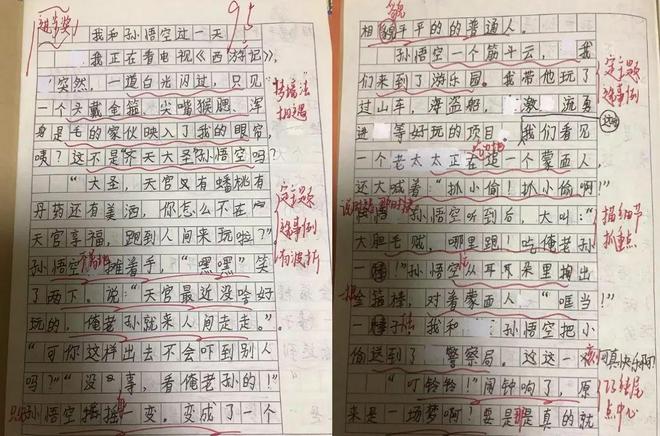 我和孙悟空过一天
95
我正在看电视《西游记》,
突然,一道白光闪过,只见
一个头戴金箍、尖嘴猴腮、浑
身是毛的家伙映入了我的眼帘,
咦?这不是“齐天大圣”孙悟空吗?
相遇
“大圣,天宫又有蟠桃有
丹药还有美酒,你怎么不在
天宫享福,跑到人间来玩啦?
定主题
选事例
有波折
孙悟空摊着手,“嘿嘿”笑
了两下。说:“天宫最近没啥好
玩的,俺老孙就来人间走走。”
“可你这样出去不会吓到别人
吗?”“没事,看俺老孙的!”
只见
孙悟空摇摇一变,变成了一个
相貌平平的的普通人。
貌
孙悟空一个筋斗云,我
们来到了游乐园。我带他玩了
过山车,海盗船,激流勇
进等好玩的项目。我们看见
定主题
选事例
一个老太太正在追一个蒙面人,
还大喊着:“抓小偷!抓小偷啊!”
说时迟那时快
孙悟空听到后,大叫:“
大胆毛贼,哪里跑!吃俺老孙
一棒!”孙悟空从耳朵里掏出
金箍棒,对着蒙面人,“哐当!”
描细节
抓重点
一棒子,我和孙悟空把小
偷送到了警察局。这这一
真快乐啊!
“叮铃铃!”闹钟响了,原
来是一场梦啊!要是是真的就
结尾
点中心